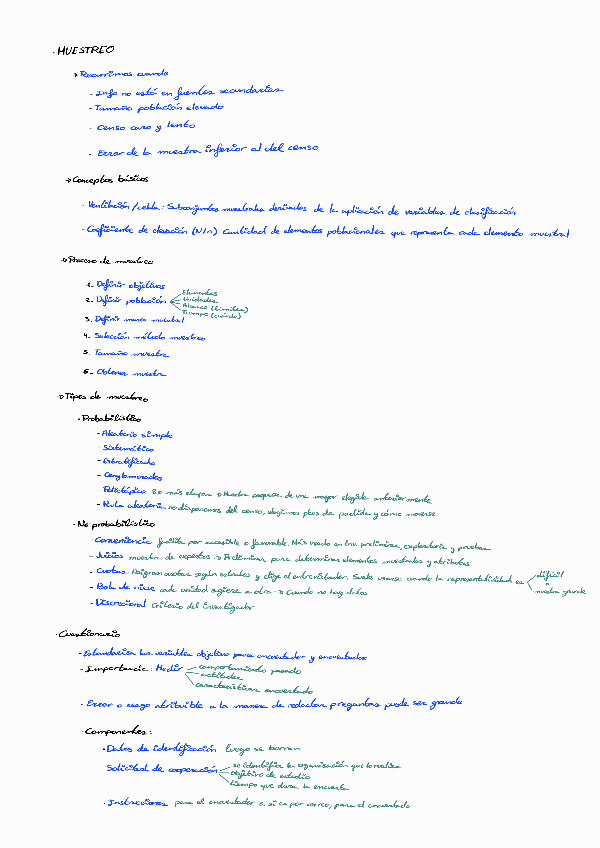 · MUESTREO
→ Recurrimos cuando
- Info no está en fuentes secundarias
- Tamaño población elevado
- Censo caro y lento
- Error de la muestra inferior al del censo
→ Conceptos básicos
· Ventilación/celda: Subconjuntos muestrales derivados de la aplicación de variables de clasificación
· Coeficiente de elevación (N/n): Cantidad de elementos poblacionales que representa cada elemento muestral
→ Proceso de muestreo
1. Definir objetivos
2. Definir población
Elementos
Unidades
Alcance (límites)
Tiempo (cuándo)
3. Definir marco muestral
4. Selección método muestreo
5. Tamaño muestra
6. Obtener muestra
→ Tipos de muestreo
· Probabilístico
- Aleatorio simple
- Sistemático
- Estratificado
- Conglomerados
- Polietápico 2 o más etapas → Muestra pequeña de una mayor elegida anteriormente
- Ruta aleatoria no disponemos del censo, elegimos ptos de partida y cómo moverse
· No probabilístico
- Conveniencia fácil por accesible o favorable. Más usado en inv. preliminar, exploratoria y pruebas
- Juicios muestra de expertos → Preliminar para determinar elementos muestrales y atributos
- Cuotas Asignan cuotas según estratos y elige el entrevistador. Suele usarse cuando la representatividad es
difícil
muestra grande
- Bola de nieve cada unidad sugiere a otra → Cuando no hay datos
- Discrecional criterio del investigador
· Cuestionario
- Estandariza las variables objetivo para encuestador y encuestados
- Importancia: Medir
comportamiento pasado
actitudes
características encuestado
- Error o sesgo atribuible a la manera de redactar preguntas puede ser grande
· Componentes:
· Datos de identificación luego se borran
Solicitud de cooperación
se identifica la organización que lo realiza
objetivo de estudio
tiempo que dura la encuesta
· Instrucciones para el encuestador o, si es por correo, para el encuestado